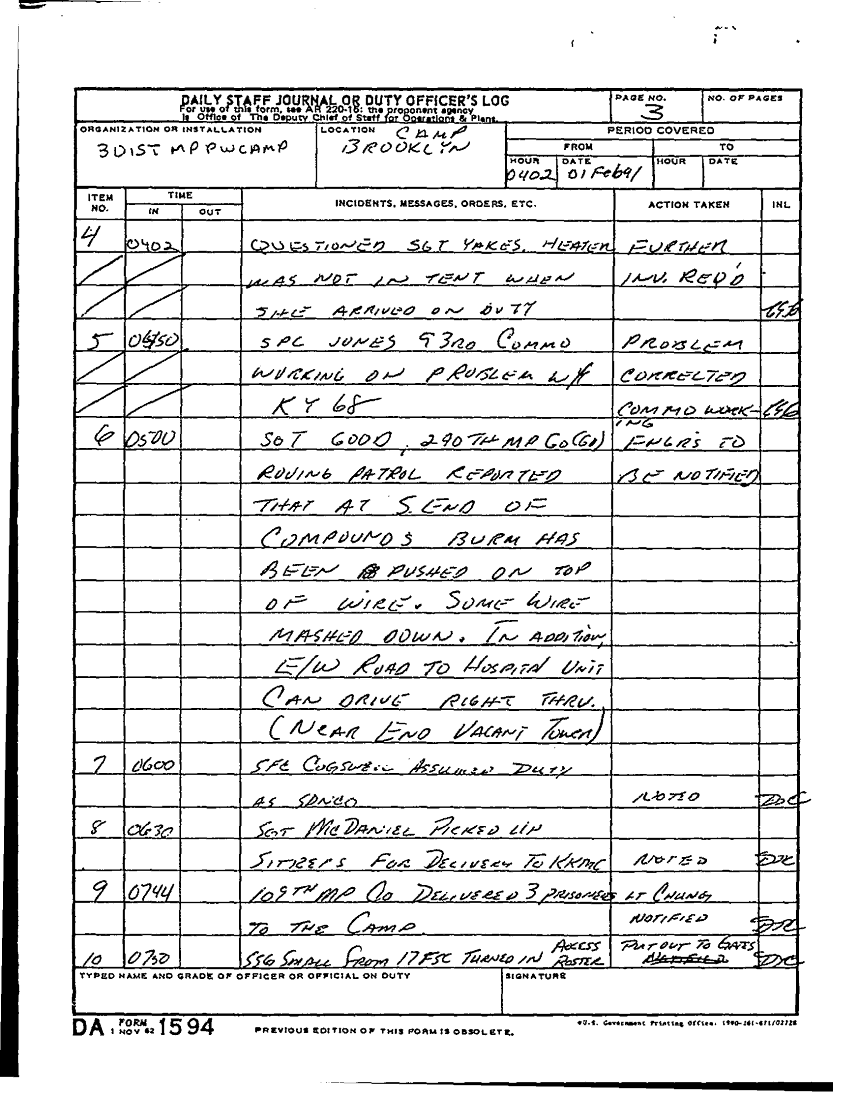 DAILY STAFF JOURNAL OR DUTY OFFICER'S LOG
For use of this form, see AR 220-15; the proponent agency
is Office of The Deputy Chief of Staff for Operations & Plans.
PAGE NO.
3
NO. OF PAGES
ORGANIZATION OR INSTALLATION
301ST MP PW CAMP
LOCATION CAMP
BROOKLYN
PERIOD COVERED
FROM TO
HOUR DATE HOUR DATE
0402 01 Feb 91
ITEM NO. TIME INCIDENTS, MESSAGES, ORDERS, ETC. ACTION TAKEN INL
IN OUT
4 0402 QUESTIONED SGT YAKES. HEATER FURTHER
WAS NOT IN TENT WHEN INV. REQ'D
SHE ARRIVED ON DUTY
5 SPC JONES 93RD COMMO PROBLEM
WORKING ON PROBLEM W/ CORRECTED
KY 68 COMMO WORK-
ING
6 0500 SGT GOOD, 290TH MP CO (GD) ENGRS TO
ROVING PATROL REPORTED BE NOTIFIED
THAT AT S. END OF
COMPOUNDS BURM HAS
BEEN PUSHED ON TOP
OF WIRE. SOME WIRE
MASHED DOWN. IN ADDITION,
E/W ROAD TO HOSPITAL UNIT
CAN DRIVE RIGHT THRU.
(NEAR END VACANT TOWER)
7 0600 SFC COGSWELL ASSUMED DUTY
AS SDNCO NOTED DDC
8 0630 SGT MCDANIEL PICKED UP
SITREPS FOR DELIVERY TO KKMC NOTED DDC
9 0744 109TH MP CO DELIVERED 3 PRISONERS LT CHUNG
TO THE CAMP NOTIFIED DDC
10 0750 SSG SMALL FROM 17 FSC TURNED IN ACCESS ROSTER PUT OUT TO GATES DDC
TYPED NAME AND GRADE OF OFFICER OR OFFICIAL ON DUTY
SIGNATURE
DA FORM 1 NOV 62 1594
PREVIOUS EDITION OF THIS FORM IS OBSOLETE.
*U.S. Government Printing Office: 1990-261-871/02728